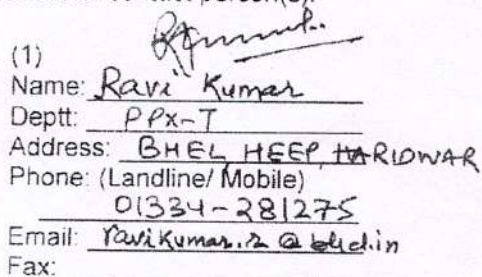 person(s).
(1)
Name: Ravi Kumar
Deptt: PPX-T
Address: BHEL, HEEP, HARIDWAR
Phone: (Landline/ Mobile)
01334-281275
Email: ravikumar.r @ bhel.in
Fax: